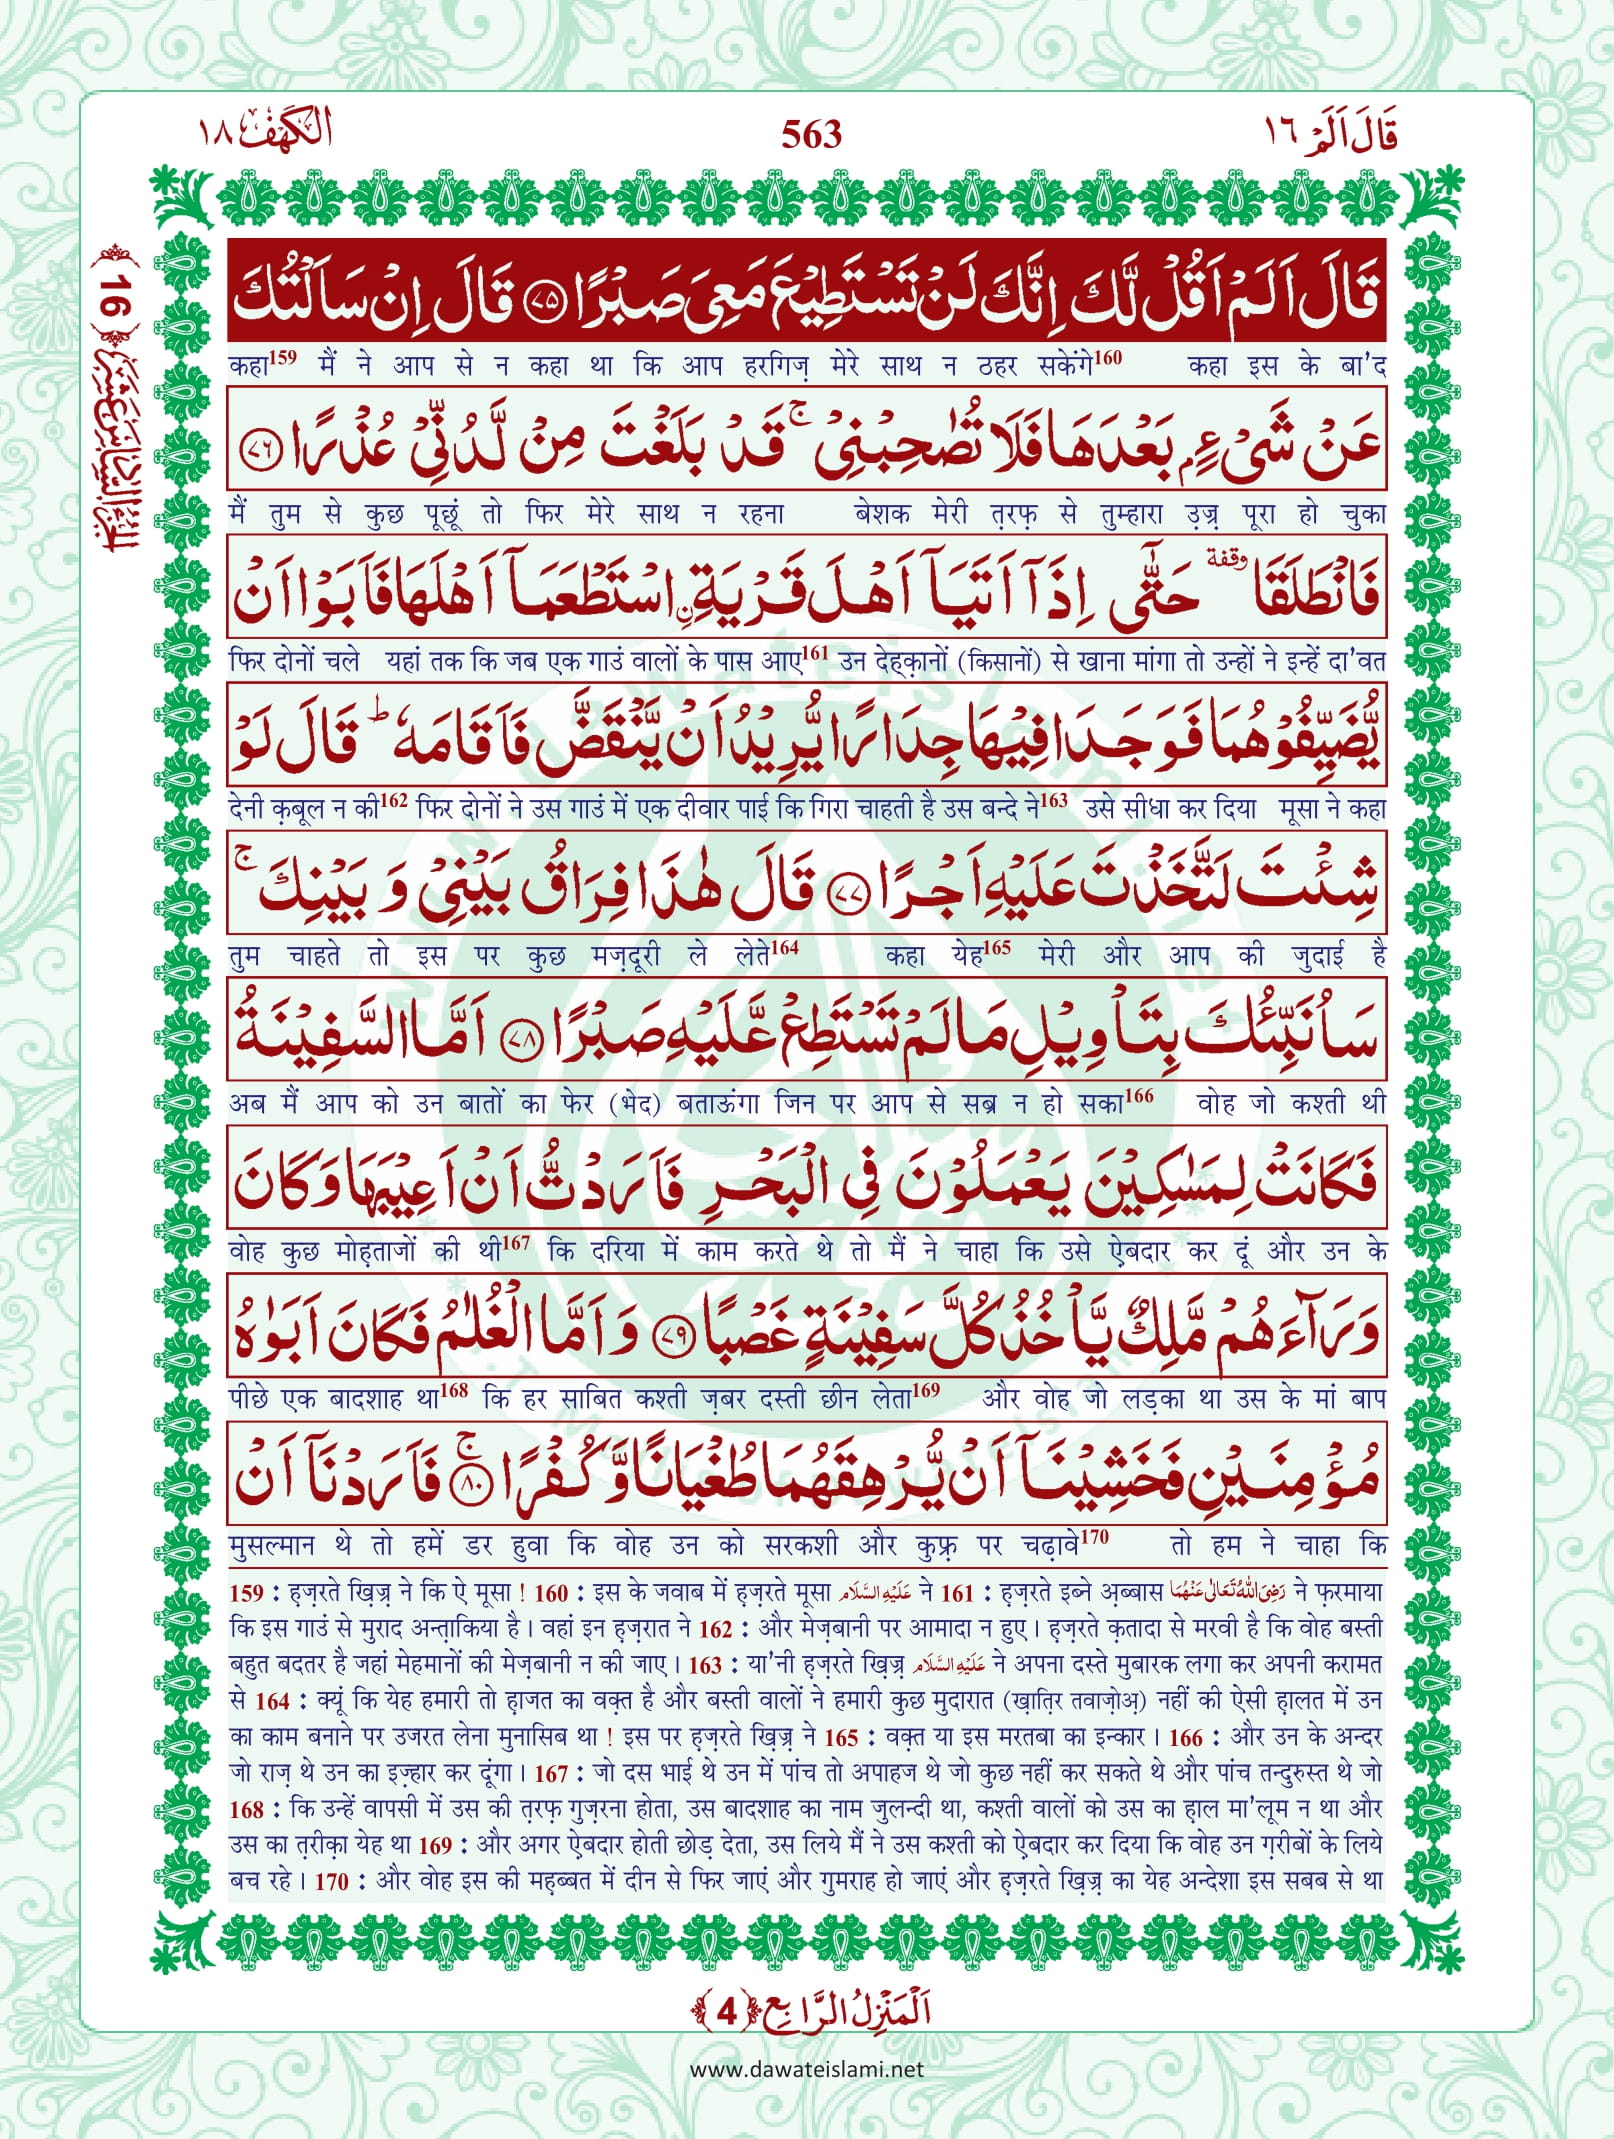 قَالَ اَلَمْ ١٦
563
الكَهْف ١٨
قَالَ اَلَمْ اَقُلْ لَّكَ اِنَّكَ لَنْ تَسْتَطِیْعَ مَعِیَ صَبْرًا ﴿۷۵﴾ قَالَ اِنْ سَاَلْتُكَ
कहा159 मैं ने आप से न कहा था कि आप हरगिज़ मेरे साथ न ठहर सकेंगे160 कहा इस के बा'द
عَنْ شَیْءٍۭ بَعْدَهَا فَلَا تُصٰحِبْنِیْ ۚ قَدْ بَلَغْتَ مِنْ لَّدُنِّیْ عُذْرًا ﴿۷۶﴾
मैं तुम से कुछ पूछूं तो फिर मेरे साथ न रहना बेशक मेरी त़रफ़ से तुम्हारा उ़ज़्र पूरा हो चुका
فَانْطَلَقَا وقفة حَتّٰۤی اِذَاۤ اَتَیَاۤ اَهْلَ قَرْیَةِ ِن اسْتَطْعَمَاۤ اَهْلَهَا فَاَبَوْا اَنْ
फिर दोनों चले यहां तक कि जब एक गाउं वालों के पास आए161 उन देह्क़ानों (किसानों) से खाना मांगा तो उन्हों ने इन्हें दा'वत
یُّضَیِّفُوْهُمَا فَوَجَدَا فِیْهَا جِدَارًا یُّرِیْدُ اَنْ یَّنْقَضَّ فَاَقَامَهٗ ؕ قَالَ لَوْ
देनी क़बूल न की162 फिर दोनों ने उस गाउं में एक दीवार पाई कि गिरा चाहती है उस बन्दे ने163 उसे सीधा कर दिया मूसा ने कहा
شِئْتَ لَتَّخَذْتَ عَلَیْهِ اَجْرًا ﴿۷۷﴾ قَالَ هٰذَا فِرَاقُ بَیْنِیْ وَ بَیْنِكَ ۚ
तुम चाहते तो इस पर कुछ मज़दूरी ले लेते164 कहा येह165 मेरी और आप की जुदाई है
سَاُنَبِّئُكَ بِتَاْوِیْلِ مَا لَمْ تَسْتَطِعْ عَّلَیْهِ صَبْرًا ﴿۷۸﴾ اَمَّا السَّفِیْنَةُ
अब मैं आप को उन बातों का फेर (भेद) बताऊंगा जिन पर आप से सब्र न हो सका166 वोह जो कश्ती थी
فَكَانَتْ لِمَسٰكِیْنَ یَعْمَلُوْنَ فِی الْبَحْرِ فَاَرَدْتُّ اَنْ اَعِیْبَهَا وَكَانَ
वोह कुछ मोह़ताजों की थी167 कि दरिया में काम करते थे तो मैं ने चाहा कि उसे ऐ़बदार कर दूं और उन के
وَرَآءَهُمْ مَّلِكٌ یَّاْخُذُ كُلَّ سَفِیْنَةٍ غَصْبًا ﴿۷۹﴾ وَ اَمَّا الْغُلٰمُ فَكَانَ اَبَوٰهُ
पीछे एक बादशाह था168 कि हर साबित कश्ती ज़बर दस्ती छीन लेता169 और वोह जो लड़का था उस के मां बाप
مُؤْمِنَیْنِ فَخَشِیْنَاۤ اَنْ یُّرْهِقَهُمَا طُغْیَانًا وَّ كُفْرًا ﴿۸۰﴾ۚ فَاَرَدْنَاۤ اَنْ
मुसल्मान थे तो हमें डर हुवा कि वोह उन को सरकशी और कुफ़्र पर चढ़ावे170 तो हम ने चाहा कि
159 : ह़ज़रते ख़िज़्र ने कि ऐ मूसा ! 160 : इस के जवाब में ह़ज़रते मूसा عَلَیْهِ السَّلَام ने 161 : ह़ज़रते इब्ने अ़ब्बास رَضِیَ اللهُ تَعَالٰی عَنْهُمَا ने फ़रमाया
कि इस गाउं से मुराद अन्त़ाकिया है । वहां इन ह़ज़रात ने 162 : और मेज़बानी पर आमादा न हुए । ह़ज़रते क़तादा से मरवी है कि वोह बस्ती
बहुत बदतर है जहां मेहमानों की मेज़बानी न की जाए । 163 : या'नी ह़ज़रते ख़िज़्र عَلَیْهِ السَّلَام ने अपना दस्ते मुबारक लगा कर अपनी करामत
से 164 : क्यूं कि येह हमारी तो ह़ाजत का वक़्त है और बस्ती वालों ने हमारी कुछ मुदारात (ख़ात़िर तवाज़ोअ़) नहीं की ऐसी ह़ालत में उन
का काम बनाने पर उजरत लेना मुनासिब था ! इस पर ह़ज़रते ख़िज़्र ने 165 : वक़्त या इस मरतबा का इन्कार । 166 : और उन के अन्दर
जो राज़ थे उन का इज़्हार कर दूंगा । 167 : जो दस भाई थे उन में पांच तो अपाहज थे जो कुछ नहीं कर सकते थे और पांच तन्दुरुस्त थे जो
168 : कि उन्हें वापसी में उस की त़रफ़ गुज़रना होता, उस बादशाह का नाम जुलन्दी था, कश्ती वालों को उस का ह़ाल मा'लूम न था और
उस का त़रीक़ा येह था 169 : और अगर ऐ़बदार होती छोड़ देता, उस लिये मैं ने उस कश्ती को ऐ़बदार कर दिया कि वोह उन ग़रीबों के लिये
बच रहे । 170 : और वोह इस की मह़ब्बत में दीन से फिर जाएं और गुमराह हो जाएं और ह़ज़रते ख़िज़्र का येह अन्देशा इस सबब से था
اَلْمَنْزِلُ الرَّابِع ﴿4﴾
www.dawateislami.net
اَلْجُزْءُ السَّادِسَ عَشَرَ ﴿16﴾